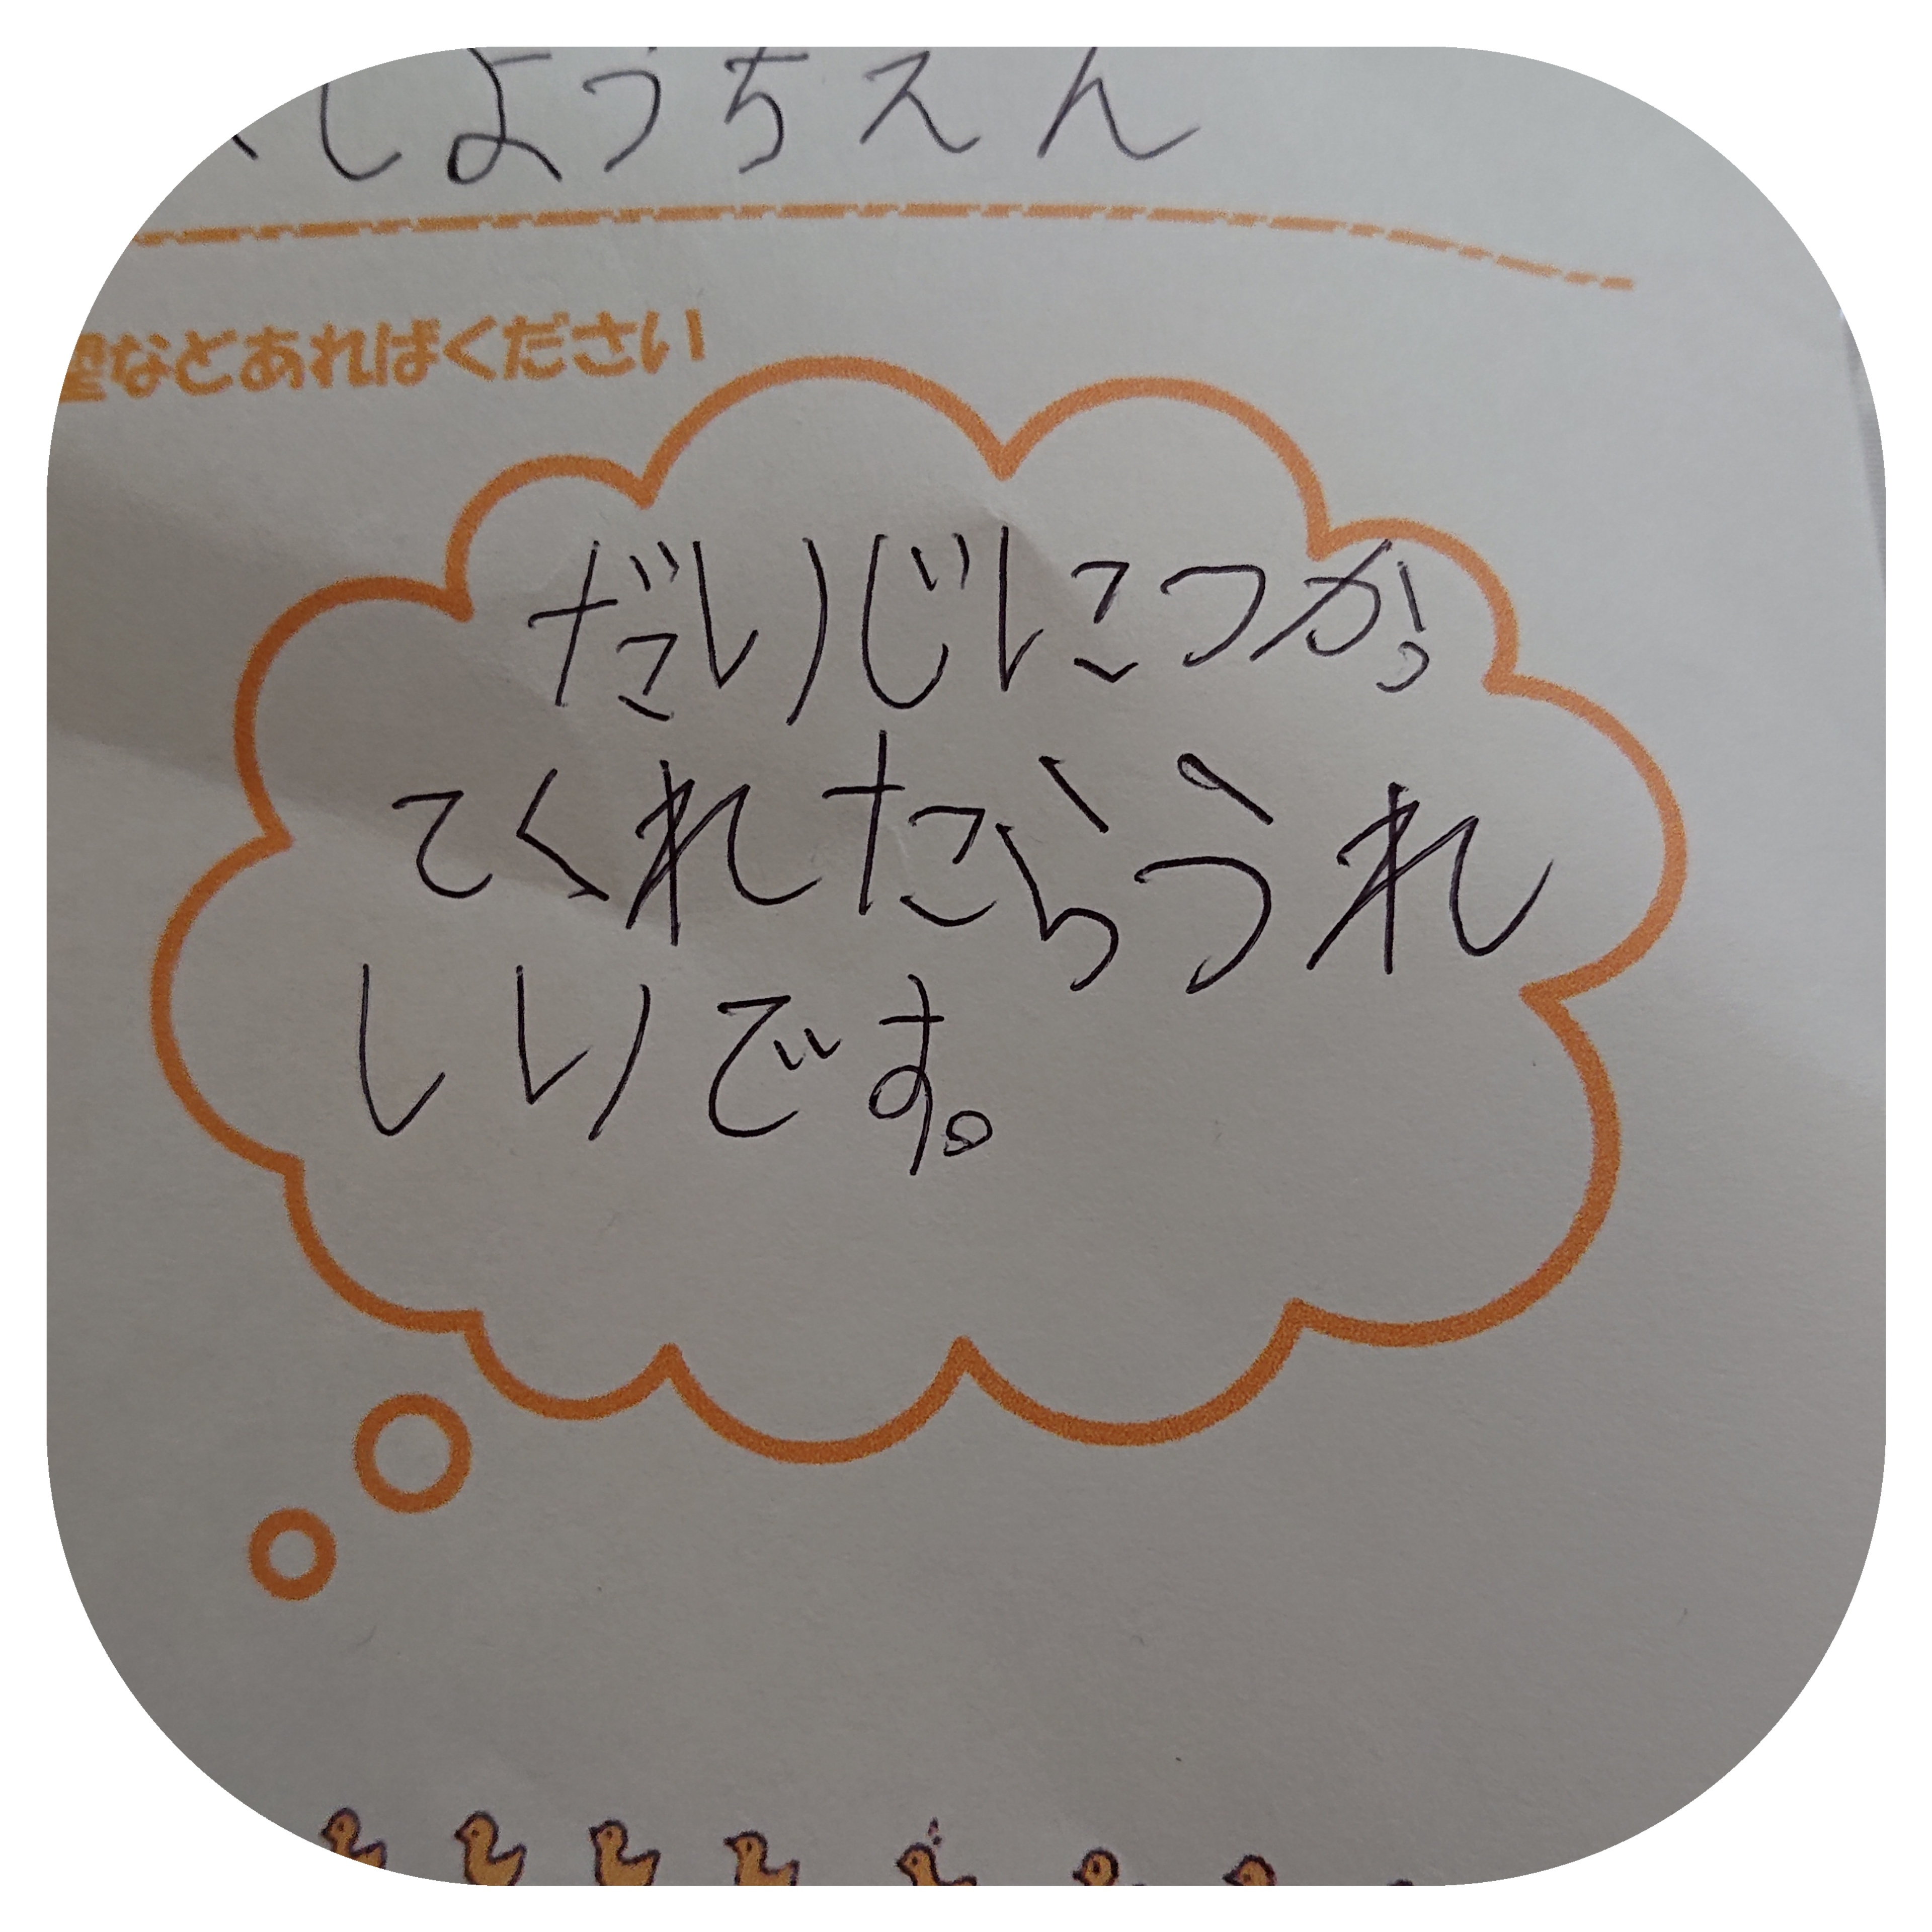 しようちえん
望などあればください
だいじにつかっ
てくれたらうれ
しいです。